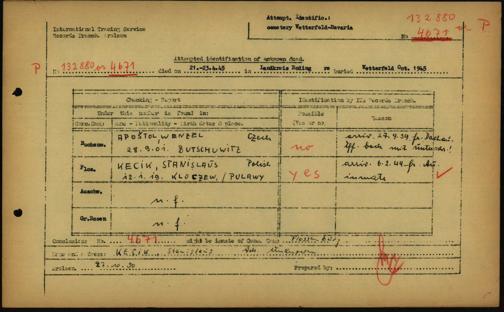 Attempt. Identific.:
cemetery Wetterfeld-Bavaria
International Tracing Service
Records Branch. Arolsen
132 880
No 4671 or P
Attempted identification of unknown dead.
P No 132880 or 4671 died on 21.-23.4.45 in Landkreis Roding re buried Wetterfeld Oct. 1945
Checking - Report
Identification by ITS Records Branch.
Under this number is found in:
Possible
(Yes or no)
Reason
Conc.Camp
Name - Nationality - Birth date & place.
Buchenw.
APOSTOL WENZEL Czech
28.9.01. BUTSCHOWITZ
no
arriv. 27.9.39 fr. Dachau
Flos.
KECIK, STANISLAUS Polish
12.1.19. KLOCZEW, / PULAWY
yes
arriv. 6.2.44 fr. Au.
inmate
Auschw.
n. f.
Gr.Rosen
n. f.
Conclusion: No. 4671 might be inmate of Conc. Camp Flossenbürg
KECIK, Stanislaus
Arolsen 27.10.50
Prepared by: